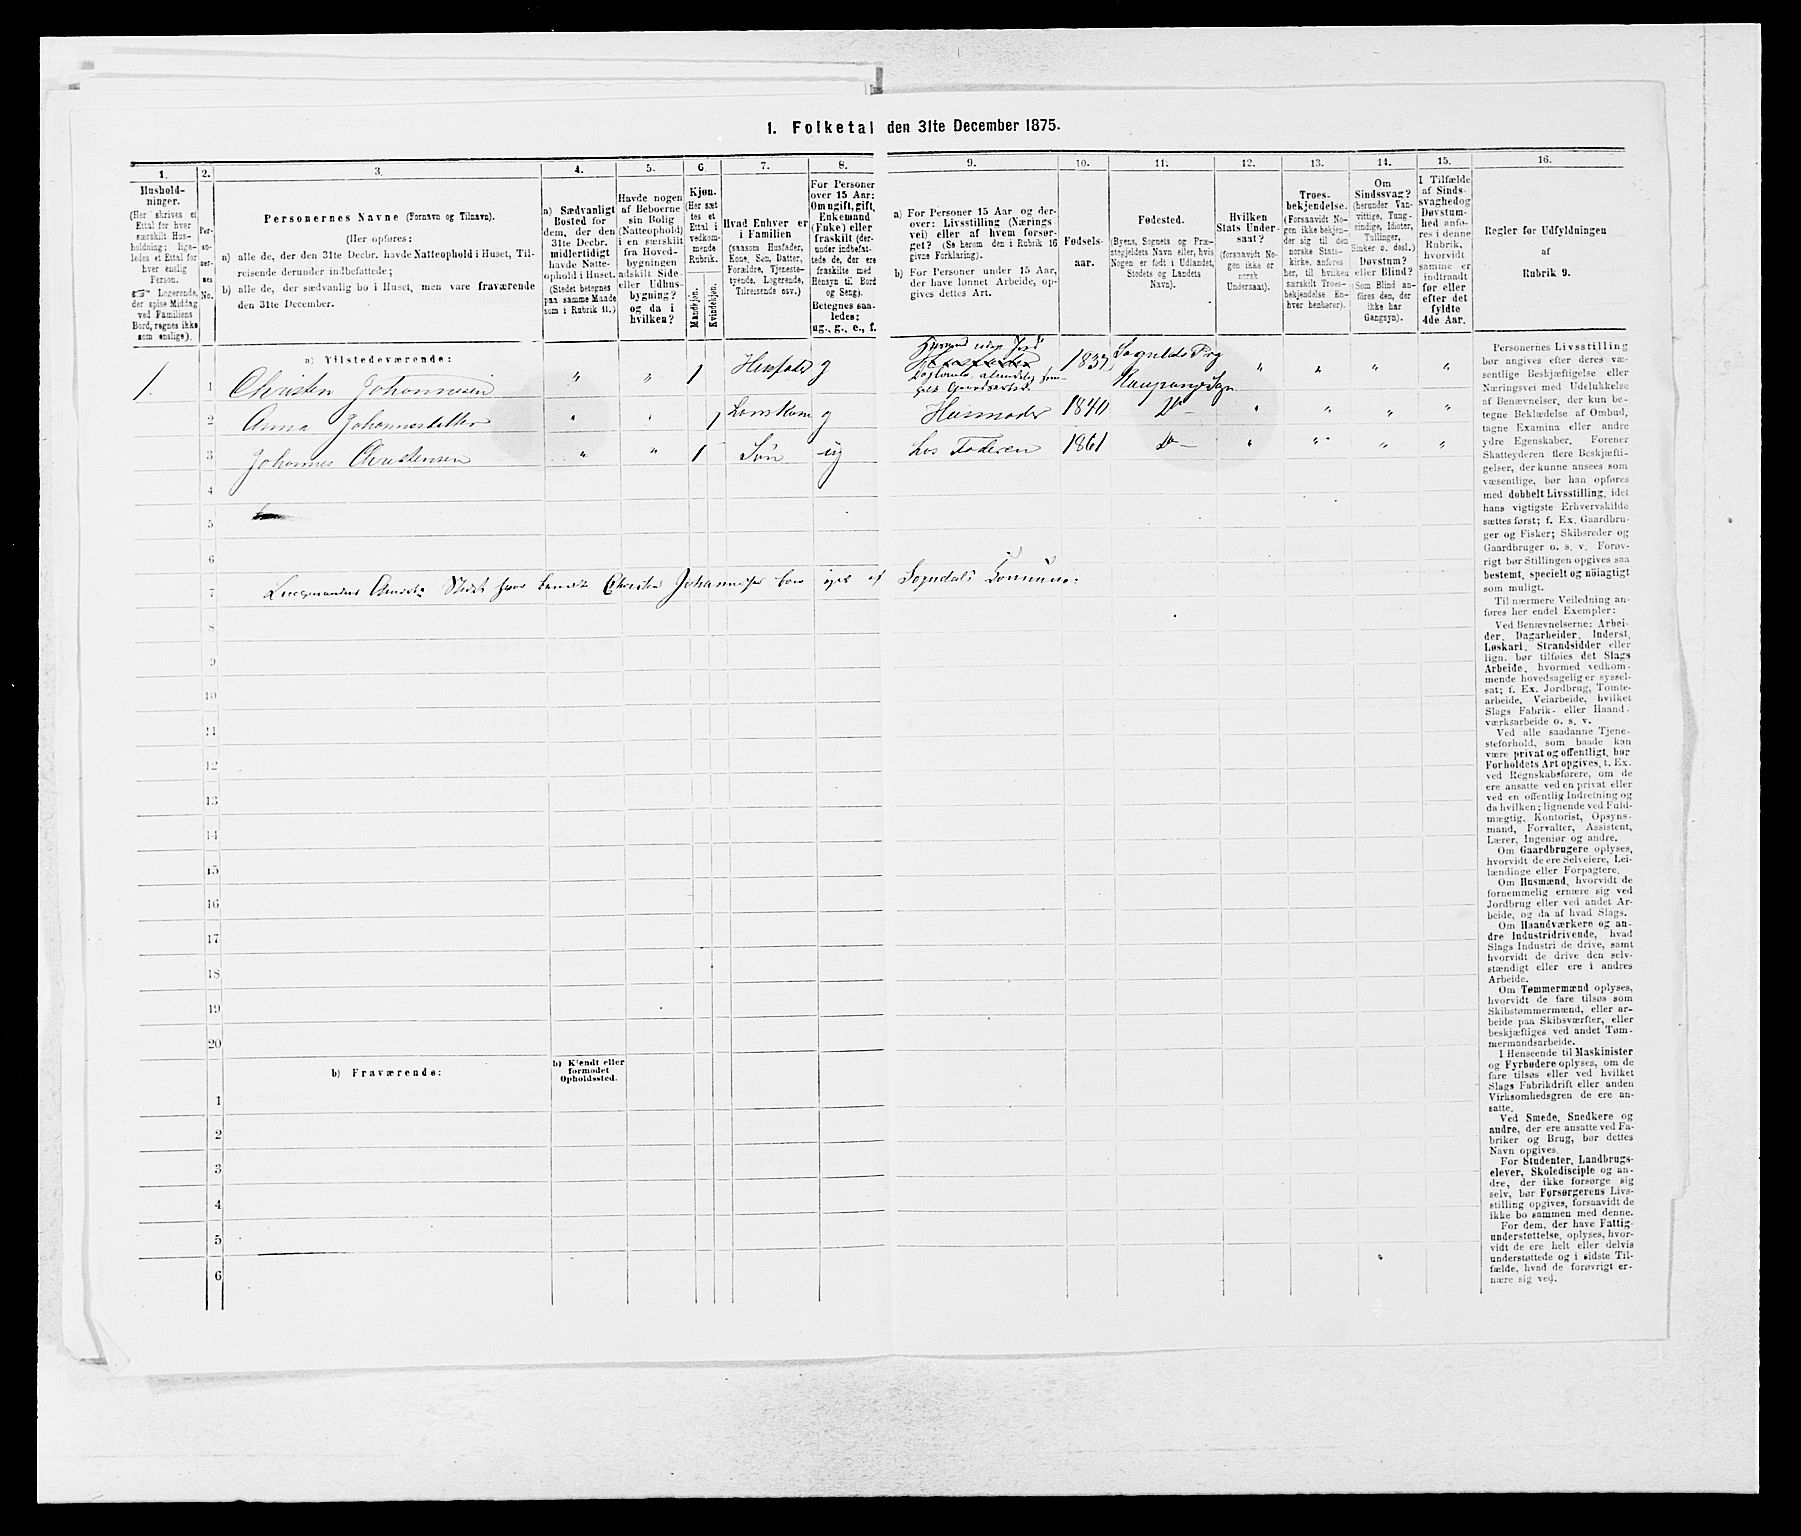 1. Folketal den 31te December 1875.
1.
Hushold-
ninger.
(Her skrives et
Ettal for hver
særskilt Hus-
holdning; lige-
ledes et Ettal for
hver enslig
Person.
☞ Logerende,
der spise Middag
ved Familiens
Bord, regnes ikke
som enslige).
2.
Per-
so-
ner-
nes
No.
3.
Personernes Navne (Fornavn og Tilnavn).
(Her opføres:
a) alle de, der den 31te Decbr. havde Natteophold i Huset, Til-
reisende derunder indbefattede;
b) alle de, der sædvanlig bo i Huset, men vare fraværende
den 31te December.
4.
a) Sædvanligt
Bosted for
dem, der den
31te Decbr.
midlertidigt
havde Natte-
ophold i Huset.
(Stedet betegnes
paa samme Maade
som i Rubrik 11.)
5.
Havde nogen
af Beboerne
sin Bolig
(Natteophold)
i en særskilt
fra Hoved-
bygningen
adskilt Side-
eller Udhus-
bygning?
og da i
hvilken?
6.
Kjøn.
(Her sæt
tes et
Ettal i
vedkom-
mende
Rubrik.
Mandkjøn.
Kvindekjøn.
7.
Hvad Enhver er
i Familien
(saasom Husfader,
Kone, Søn, Datter,
Forældre, Tjeneste-
tyende, Logerende,
Tilreisende osv.)
8.
For Personer
over 15 Aar:
Om ugift, gift,
Enkemand
(Enke) eller
fraskilt (der-
under indbefat-
tede de, der ere
fraskilte med
Hensyn til Bord
og Seng).
Betegnes saa-
ledes:
ug., g., e., f.
9.
a) For Personer 15 Aar og der-
over: Livsstilling (Nærings-
vei) eller af hvem forsør-
get? (Se herom den i Rubrik 16
givne Forklaring).
b) For Personer under 15 Aar,
der have lønnet Arbeide, op-
gives dettes Art.
10.
Fødsels-
aar.
11.
Fødested.
(Byens, Sognets og Præ-
stegjeldets Navn eller, hvis
Nogen er født i Udlandet,
Stedets og Landets
Navn).
12.
Hvilken
Stats Under-
saat?
(forsaavidt No-
gen ikke er
norsk
Undersaat).
13.
Troes-
bekjendelse.
(Forsaavidt No-
gen ikke bekjen-
der sig til den
norske Stats-
kirke, anføres
her, til hvilken
særskilt Troes-
bekjendelse En-
hver henhører).
14.
Om
Sindssvag?
(herunder Van-
vittige, Tung-
sindige, Idioter,
Tullinger,
Sinker o. desl.)
Døvstum?
eller Blind?
(Som Blind an-
føres den, der
ikke har
Gangsyn).
15.
I Tilfælde
af Sinds-
svaghed og
Døvstum-
hed anfø-
res i denne
Rubrik,
hvorvidt
samme er
indtraadt
før eller
efter det
fyldte
4de Aar.
16.
Regler for Udfyldningen
af
Rubrik 9.
a) Tilstedeværende:
1. 1 Christen Johannesen " " 1 Husfader g Husmand uden Jord 1837 Sogndals Prg " " " "
Husfader
Kaupanger Sgn
2 Anna Johannesdatter " " 1 hans Kone g Husmoder 1840 Do " " " "
3 Johannes Christensen " " 1 Søn ug hos Faderen 1861 Do " " " "
4
5
6
7 Christen Johannesen af Sogndals Commune.
8
9
10
11
12
13
14
15
16
17
18
19
20
b) Fraværende:
b) Kjendt eller
formodet
Opholdssted.
1
2
3
4
5
6
Personernes Livsstilling
bør angives efter deres væ-
sentlige Beskjæftigelse eller
Næringsvei med Udelukkelse
af Benævnelser, der kun be-
tegne Beklædelse af Ombud,
tagne Examina eller andre
ydre Egenskaber. Forener
Skatteyderen flere Beskjæfti-
gelser, der kunne ansees som
væsentlige, bør han opføres
med dobbelt Livsstilling, idet
hans vigtigste Erhvervskilde
sættes først; f. Ex. Gaardbru-
ger og Fisker; Skibsreder og
Gaardbruger o. s. v. Forøv-
rigt bør Stillingen opgives saa
bestemt, specielt og nøiagtigt
som muligt.
Til nærmere Veiledning an-
føres her endel Exempler:
Ved Benævnelserne: Arbei-
der, Dagarbeider, Inderst,
Løskarl, Strandsidder eller
lign. bør tilføies det Slags
Arbeide, hvormed vedkom-
mende hovedsagelig er syssel-
sat; f. Ex. Jordbrug, Tomte-
arbeide, Veiarbeide, hvilket
Slags Fabrik- eller Haand-
værksarbeide o. s. v.
Ved alle saadanne Tjene-
steforhold, som baade kan
være privat og offentligt, bør
Forholdets Art opgives, f. Ex.
ved Regnskabsførere, om de
ere ansatte ved en privat eller
ved en offentlig Indretning og
da hvilken; lignende ved Fuld-
mægtig, Kontorist, Opsyns-
mand, Forvalter, Assistent,
Lærer, Ingeniør og andre.
Om Gaardbrugere oplyses,
hvorvidt de ere Selveiere, Lei-
lændinge eller Forpagtere.
Om Husmænd, hvorvidt de
fornemmelig ernære sig ved
Jordbrug eller ved andet Ar-
beide, og da af hvad Slags.
Om Haandværkere og an-
dre Industridrivende, hvad
Slags Industri de drive, samt
hvorvidt de drive den selv-
stændigt eller ere i andres
Arbeide.
Om Tømmermænd oplyses,
hvorvidt de fare tilsøs som
Skibstømmermænd, eller ar-
beide paa Skibsværfter, eller
beskjæftiges ved andet Tøm-
mermandsarbeide.
I Henseende til Maskinister
og Fyrbødere oplyses, om de
fare tilsøs eller ved hvilket
Slags Fabrikdrift eller anden
Virksomhedsgren de ere an-
satte.
Ved Smede, Snedkere og
andre, der ere ansatte ved Fa-
briker og Brug, bør dettes
Navn opgives.
For Studenter, Landbrugs-
elever, Skoledisciple og an-
dre, der ikke forsørge sig
selv, bør Forsørgerens Livs-
stilling opgives, forsaavidt de
ikke bo sammen med denne.
For dem, der have Fattig-
understøttelse, oplyses, hvor-
vidt de ere helt eller delvis
understøttede og i sidste Til-
fælde, hvad de forøvrigt er-
nære sig ved.